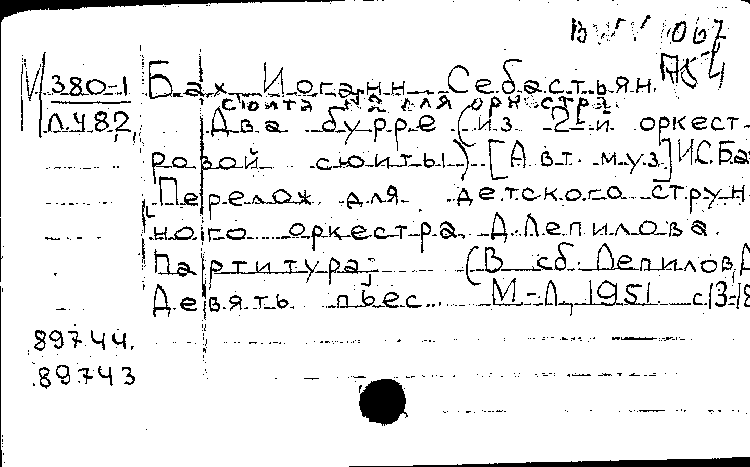 BWV 1067
М 380-1 Бах, Иоганн Себастьян.
сюита №2 для оркестра.
Л.482 Два бурре (из 2-й оркест-
ровой сюиты) [Авт. муз] И.С.Ба
Перелож для детского струн
ного оркестра Д.Лепилова.
Партитура; (В сб. Лепилов Д
Девять пьес. М-Л, 1951. с13-18
89744.
89743